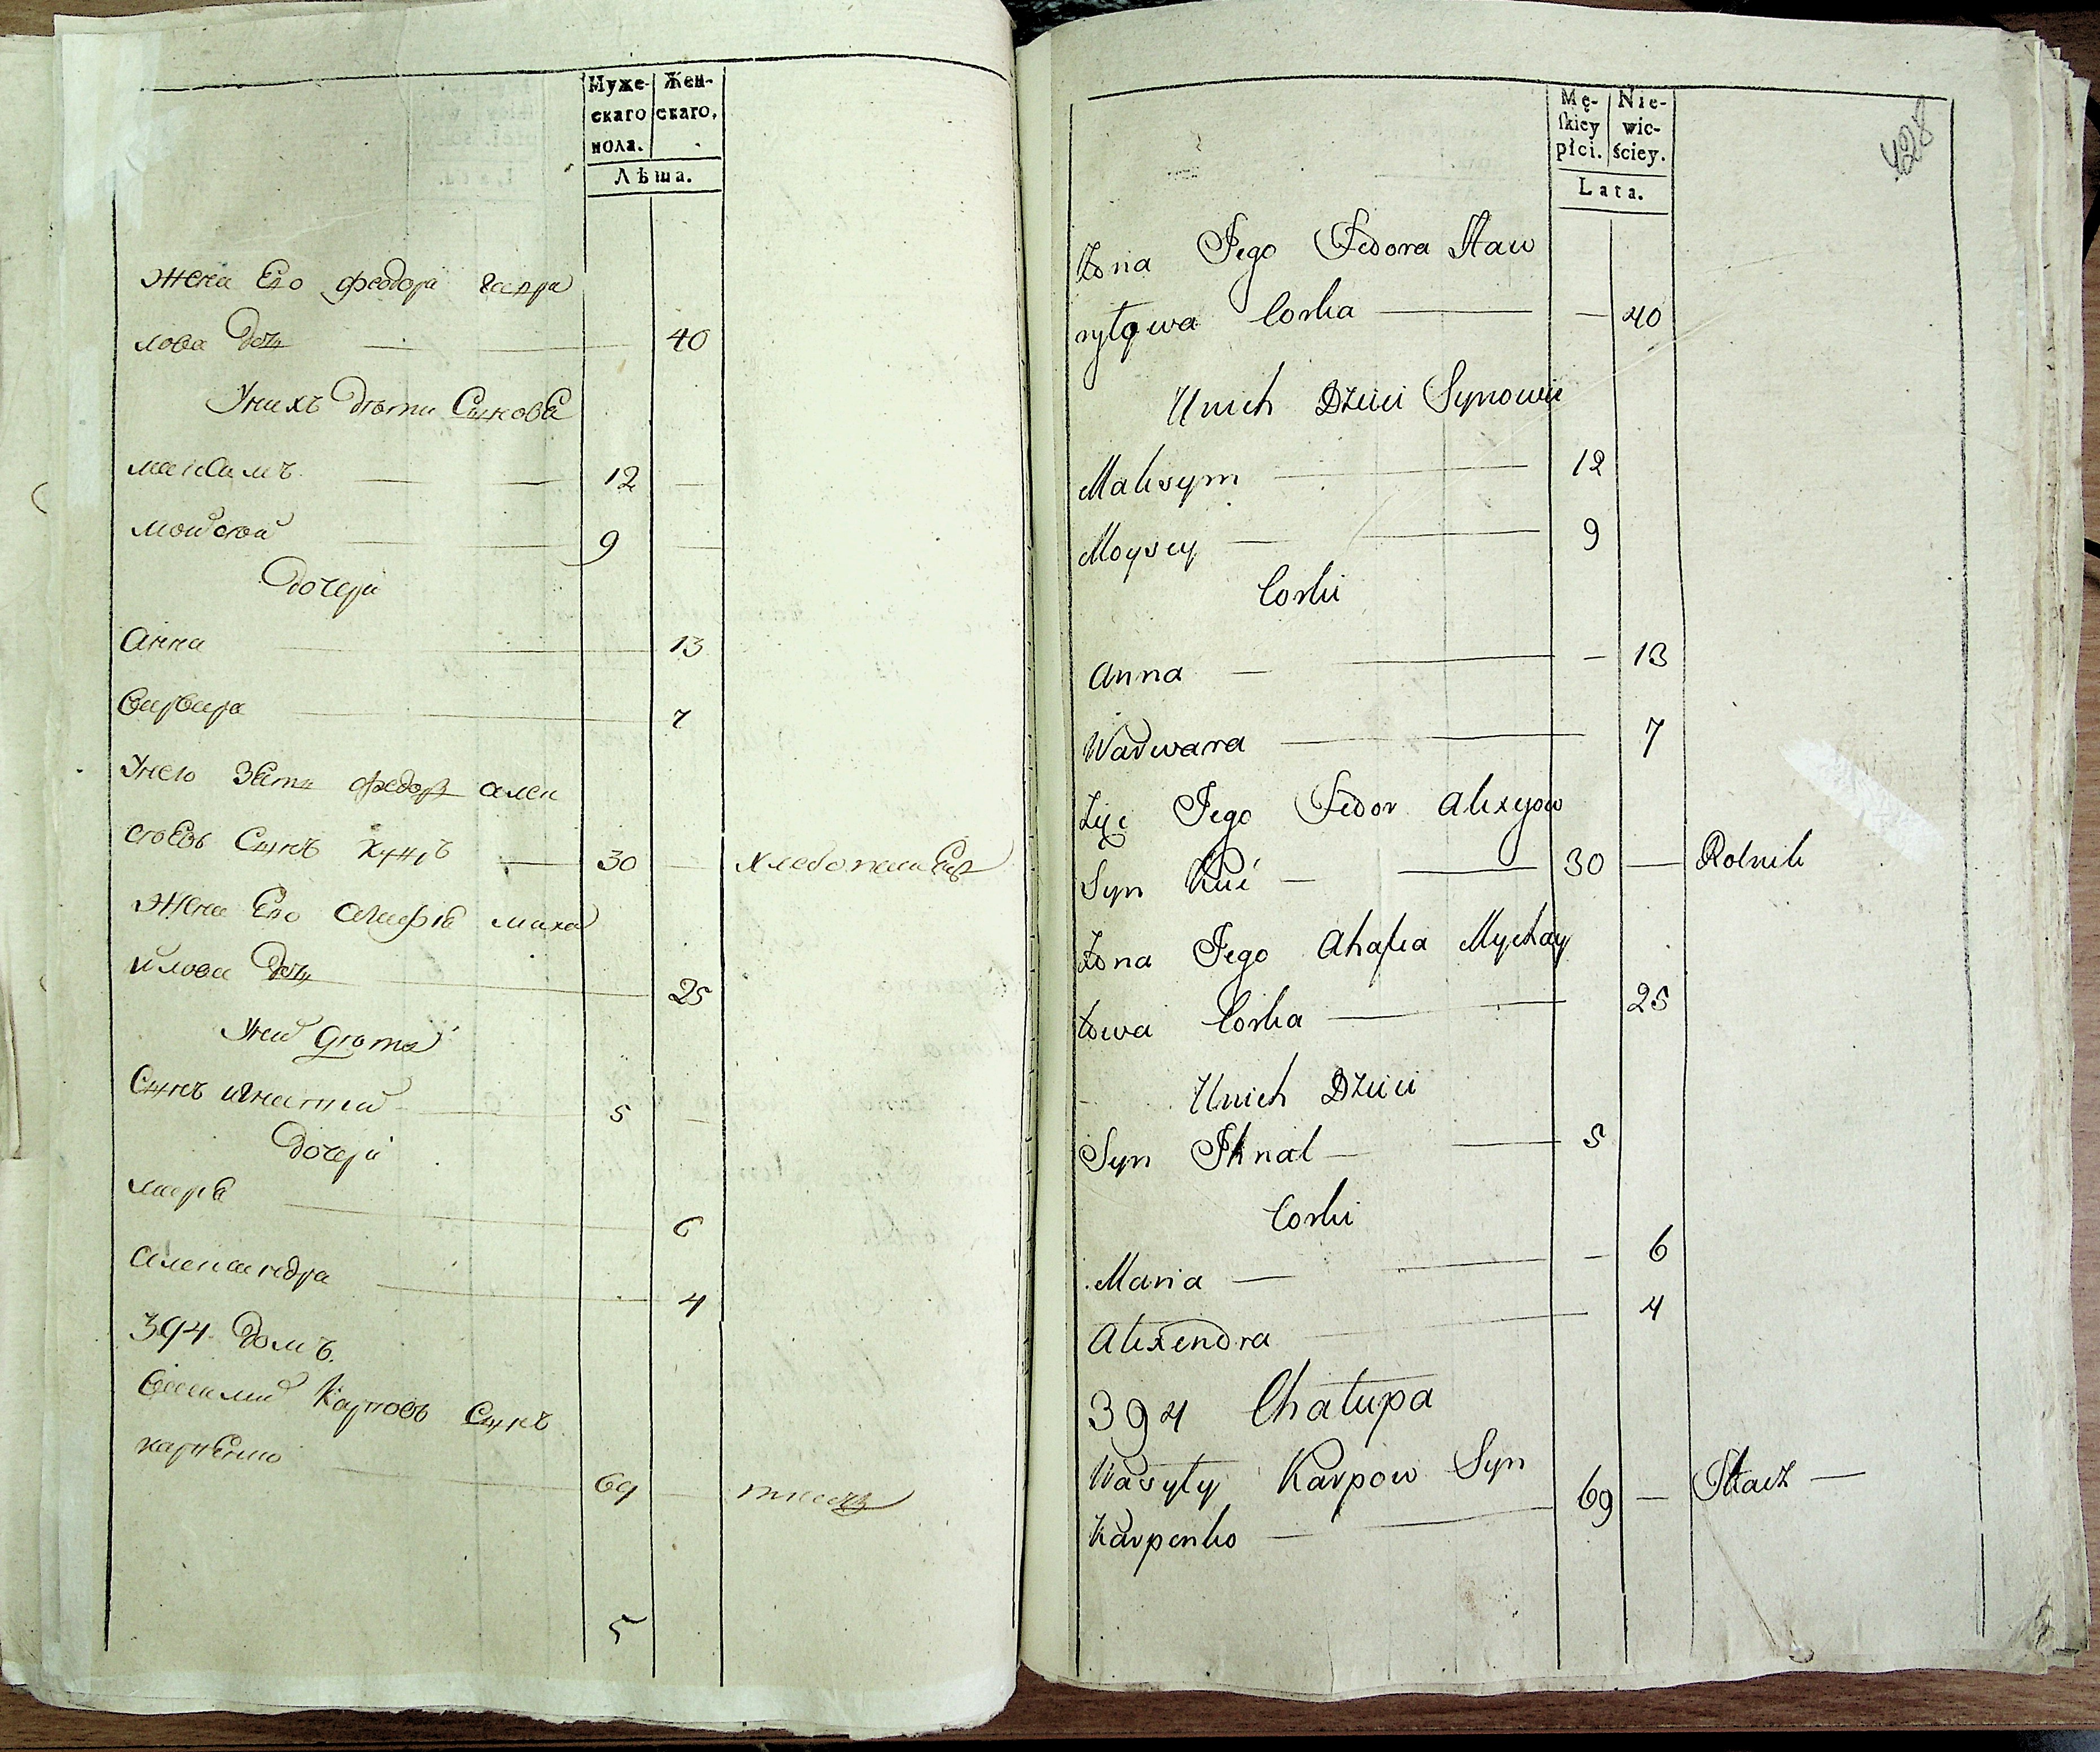 Муже- Жен-
скаго скаго,
пола.
Лѣта.
жена Его феодора гаври
лова дочь 40
Унихъ дѣти Сынове
максимъ 12
мойсей 9
дочери
Анна 13
Варвара 7
Унего Зять федоръ алек
сеевъ Сынъ Куцъ 30 хлебопашецъ
жена Его агафiя миха
йлова дочь 25
Уних дети
Сынъ игнатий 5
дочери
марiя 6
Александра 4
394 домъ.
Василий Карповъ Сынъ
карпенко 69 ткачъ
5
Mę- Nie-
ſkiey wie-
płci. ściey.
Lata.
428
Żona Jego Fedora Haw
ryłowa Corka 40
Unich Dzieci Synowie
Maksym 12
Moysey 9
Corki
Anna 13
Warwara 7
Zięć Jego Fedor Alexyow
Syn Kuć 30 Rolnik
Żona Jego Ahafia Mychay
łowa Corka 25
Unich Dzieci
Syn Ihnat 5
Corki
Maria 6
Alexendra 4
394 Chałupa
Wasyły Karpow Syn
Karpenko 69 Tkacz